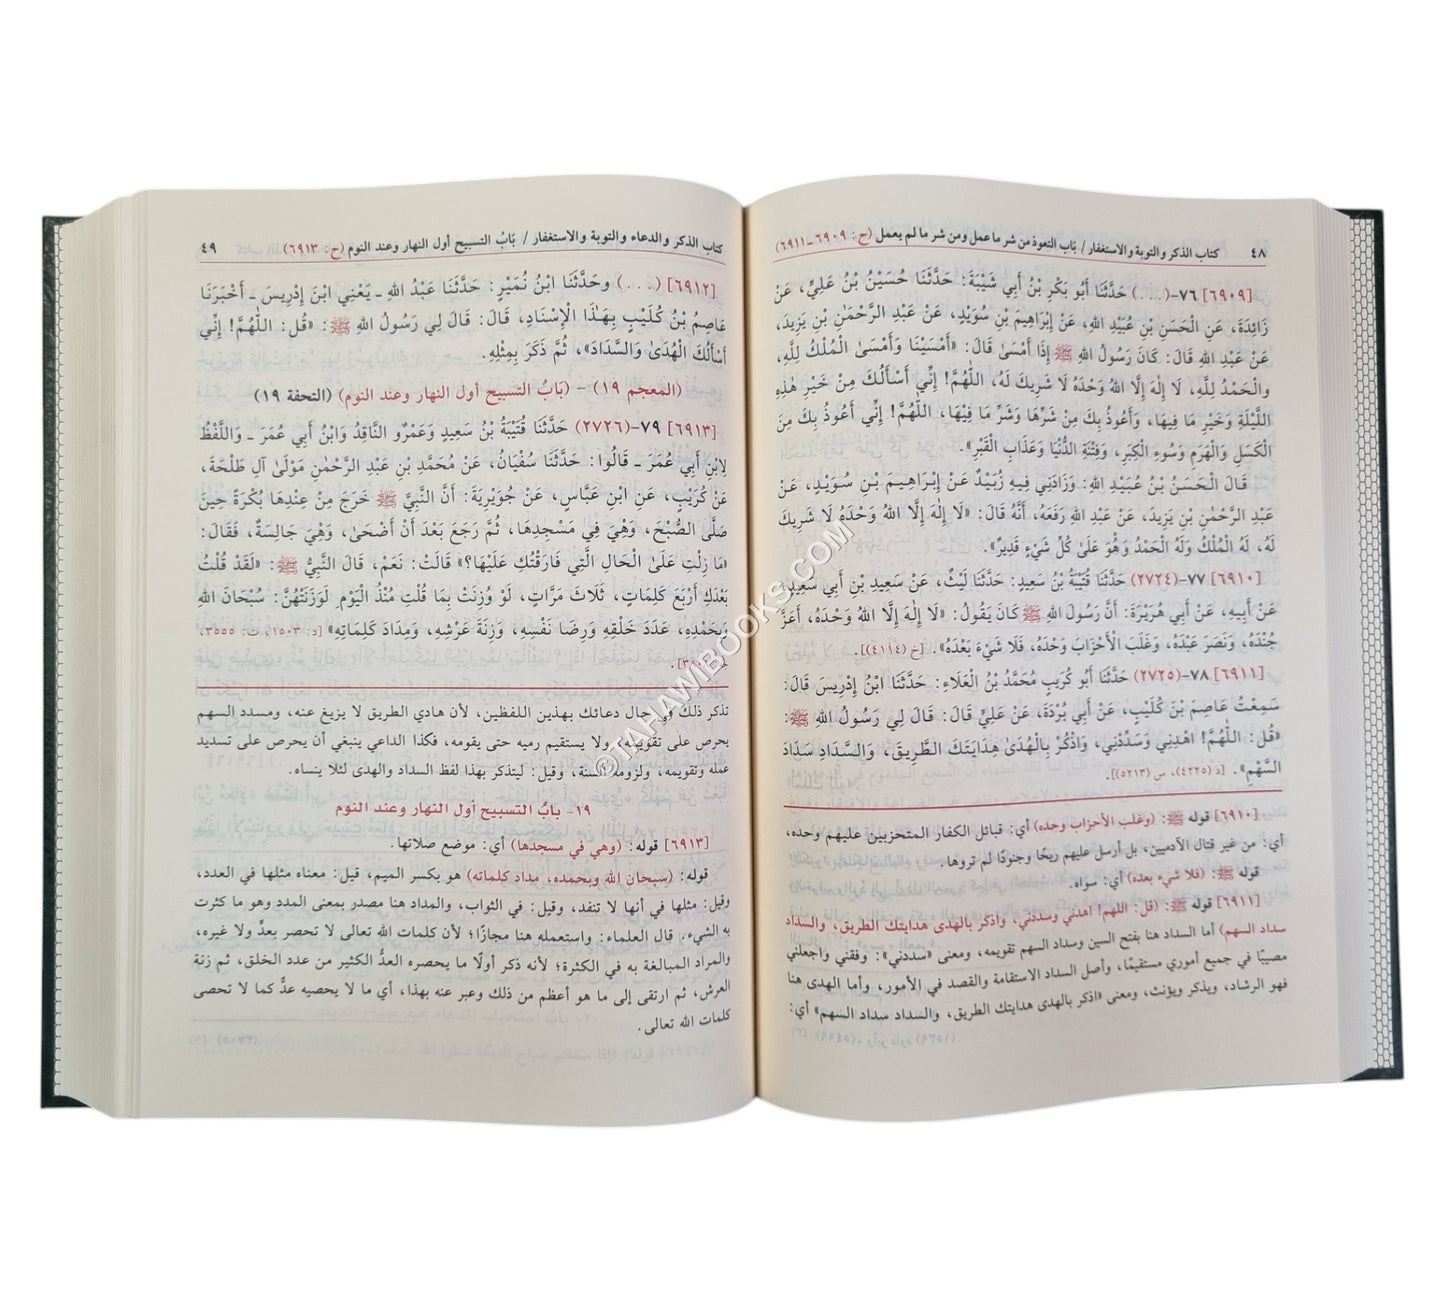 ٤٨ كتاب الذكر والتوبة والاستغفار / باب التعوذ من شر ما عمل ومن شر ما لم يعمل (ح: ٦٩٠٩-٦٩١١)
[٦٩٠٩] ٧٦-(...) حَدَّثَنَا أَبُو بَكْرِ بْنُ أَبِي شَيْبَةَ: حَدَّثَنَا حُسَيْنُ بْنُ عَلِيٍّ، عَنْ
زَائِدَةَ، عَنِ الْحَسَنِ بْنِ عُبَيْدِ اللهِ، عَنْ إِبْرَاهِيمَ بْنِ سُوَيْدٍ، عَنْ عَبْدِ الرَّحْمٰنِ بْنِ يَزِيدَ،
عَنْ عَبْدِ اللهِ قَالَ: كَانَ رَسُولُ اللهِ ﷺ إِذَا أَمْسَىٰ قَالَ: «أَمْسَيْنَا وَأَمْسَىٰ الْمُلْكُ لِلَّهِ،
وَالْحَمْدُ لِلَّهِ، لَا إِلٰهَ إِلَّا اللهُ وَحْدَهُ لَا شَرِيكَ لَهُ، اللّٰهُمَّ! إِنِّي أَسْأَلُكَ مِنْ خَيْرِ هٰذِهِ
اللَّيْلَةِ وَخَيْرِ مَا فِيهَا، وَأَعُوذُ بِكَ مِنْ شَرِّهَا وَشَرِّ مَا فِيهَا، اللّٰهُمَّ! إِنِّي أَعُوذُ بِكَ مِنَ
الْكَسَلِ وَالْهَرَمِ وَسُوءِ الْكِبَرِ، وَفِتْنَةِ الدُّنْيَا وَعَذَابِ الْقَبْرِ».
قَالَ الْحَسَنُ بْنُ عُبَيْدِ اللهِ: وَزَادَنِي فِيهِ زُبَيْدٌ عَنْ إِبْرَاهِيمَ بْنِ سُوَيْدٍ، عَنْ
عَبْدِ الرَّحْمٰنِ بْنِ يَزِيدَ، عَنْ عَبْدِ اللهِ رَفَعَهُ، أَنَّهُ قَالَ: «لَا إِلٰهَ إِلَّا اللهُ وَحْدَهُ لَا شَرِيكَ
لَهُ، لَهُ الْمُلْكُ وَلَهُ الْحَمْدُ وَهُوَ عَلَىٰ كُلِّ شَيْءٍ قَدِيرٌ».
[٦٩١٠] ٧٧-(٢٧٢٤) حَدَّثَنَا قُتَيْبَةُ بْنُ سَعِيدٍ: حَدَّثَنَا لَيْثٌ، عَنْ سَعِيدِ بْنِ أَبِي سَعِيدٍ،
عَنْ أَبِيهِ، عَنْ أَبِي هُرَيْرَةَ: أَنَّ رَسُولَ اللهِ ﷺ كَانَ يَقُولُ: «لَا إِلٰهَ إِلَّا اللهُ وَحْدَهُ، أَعَزَّ
جُنْدَهُ، وَنَصَرَ عَبْدَهُ، وَغَلَبَ الْأَحْزَابَ وَحْدَهُ، فَلَا شَيْءَ بَعْدَهُ». [خ (٤١١٤)].
[٦٩١١] ٧٨-(٢٧٢٥) حَدَّثَنَا أَبُو كُرَيْبٍ مُحَمَّدُ بْنُ الْعَلَاءِ: حَدَّثَنَا ابْنُ إِدْرِيسَ قَالَ:
سَمِعْتُ عَاصِمَ بْنَ كُلَيْبٍ، عَنْ أَبِي بُرْدَةَ، عَنْ عَلِيٍّ قَالَ: قَالَ لِي رَسُولُ اللهِ ﷺ:
«قُلِ: اللّٰهُمَّ! اهْدِنِي وَسَدِّدْنِي، وَاذْكُرْ بِالْهُدَىٰ هِدَايَتَكَ الطَّرِيقَ، وَالسَّدَادِ سَدَادَ
السَّهْمِ». [د (٤٢٢٥)، س (٥٢١٣)].
[٦٩١٠] قوله ﷺ: (وغلب الأحزاب وحده) أي: قبائل الكفار المتحزبين عليهم وحده،
أي: من غير قتال الآدميين، بل أرسل عليهم ريحًا وجنودًا لم تروها.
قوله ﷺ: (فلا شيء بعده) أي: سواه.
[٦٩١١] قوله ﷺ: (قل: اللهم! اهدني وسددني، واذكر بالهدى هدايتك الطريق، والسداد
سداد السهم) أما السداد هنا بفتح السين وسداد السهم تقويمه، ومعنى «سددني»: وفقني واجعلني
مصيبًا في جميع أموري مستقيمًا، وأصل السداد الاستقامة والقصد في الأمور، وأما الهدى هنا
فهو الرشاد، ويذكر ويؤنث، ومعنى «اذكر بالهدى هدايتك الطريق، والسداد سداد السهم» أي:
كتاب الذكر والدعاء والتوبة والاستغفار / بَابُ التسبيح أول النهار وعند النوم (ح: ٦٩١٣) ٤٩
[٦٩١٢] (...) وحَدَّثَنَا ابْنُ نُمَيْرٍ: حَدَّثَنَا عَبْدُ اللهِ ـ يَعْنِي ابْنَ إِدْرِيسَ ـ أَخْبَرَنَا
عَاصِمُ بْنُ كُلَيْبٍ بِهَـٰذَا الْإِسْنَادِ، قَالَ: قَالَ لِي رَسُولُ اللهِ ﷺ: «قُلِ: اللّٰهُمَّ! إِنِّي
أَسْأَلُكَ الْهُدَىٰ وَالسَّدَادَ»، ثُمَّ ذَكَرَ بِمِثْلِهِ.
(المعجم ١٩) - (بَابُ التسبيح أول النهار وعند النوم) (التحفة ١٩)
[٦٩١٣] ٧٩-(٢٧٢٦) حَدَّثَنَا قُتَيْبَةُ بْنُ سَعِيدٍ وَعَمْرٌو النَّاقِدُ وَابْنُ أَبِي عُمَرَ ـ وَاللَّفْظُ
لِابْنِ أَبِي عُمَرَ ـ قَالُوا: حَدَّثَنَا سُفْيَانُ، عَنْ مُحَمَّدِ بْنِ عَبْدِ الرَّحْمٰنِ مَوْلَىٰ آلِ طَلْحَةَ،
عَنْ كُرَيْبٍ، عَنِ ابْنِ عَبَّاسٍ، عَنْ جُوَيْرِيَةَ: أَنَّ النَّبِيَّ ﷺ خَرَجَ مِنْ عِنْدِهَا بُكْرَةً حِينَ
صَلَّى الصُّبْحَ، وَهْيَ فِي مَسْجِدِهَا، ثُمَّ رَجَعَ بَعْدَ أَنْ أَضْحَىٰ، وَهْيَ جَالِسَةٌ، فَقَالَ:
«مَا زِلْتِ عَلَىٰ الْحَالِ الَّتِي فَارَقْتُكِ عَلَيْهَا؟» قَالَتْ: نَعَمْ، قَالَ النَّبِيُّ ﷺ: «لَقَدْ قُلْتُ
بَعْدَكِ أَرْبَعَ كَلِمَاتٍ، ثَلَاثَ مَرَّاتٍ، لَوْ وُزِنَتْ بِمَا قُلْتِ مُنْذُ الْيَوْمِ لَوَزَنَتْهُنَّ: سُبْحَانَ اللهِ
وَبِحَمْدِهِ، عَدَدَ خَلْقِهِ وَرِضَا نَفْسِهِ، وَزِنَةَ عَرْشِهِ، وَمِدَادَ كَلِمَاتِهِ» [د: ١٥٠٣، ت: ٣٥٥٥،
تذكر ذلك في حال دعائك بهذين اللفظين، لأن هادي الطريق لا يزيغ عنه، ومسدد السهم
يحرص على تقويمه، ولا يستقيم رميه حتى يقومه، فكذا الداعي ينبغي أن يحرص على تسديد
عمله وتقويمه، ولزومه السنة، وقيل: ليتذكر بهذا لفظ السداد والهدى لئلا ينساه.
١٩- بابُ التسبيح أول النهار وعند النوم
[٦٩١٣] قوله: (وهي في مسجدها) أي: موضع صلاتها.
قوله: (سبحان الله وبحمده، مداد كلماته) هو بكسر الميم، قيل: معناه مثلها في العدد،
وقيل: مثلها في أنها لا تنفد، وقيل: في الثواب، والمداد هنا مصدر بمعنى المدد وهو ما كثرت
به الشيء. قال العلماء: واستعمله هنا مجازًا؛ لأن كلمات الله تعالى لا تحصر بعدٍّ ولا غيره،
والمراد المبالغة به في الكثرة؛ لأنه ذكر أولًا ما يحصره العدُّ الكثير من عدد الخلق، ثم زنة
العرش، ثم ارتقى إلى ما هو أعظم من ذلك وعبر عنه بهذا، أي ما لا يحصيه عدٌّ كما لا تحصى
كلمات الله تعالى.
©TAHAWIBOOKS.COM